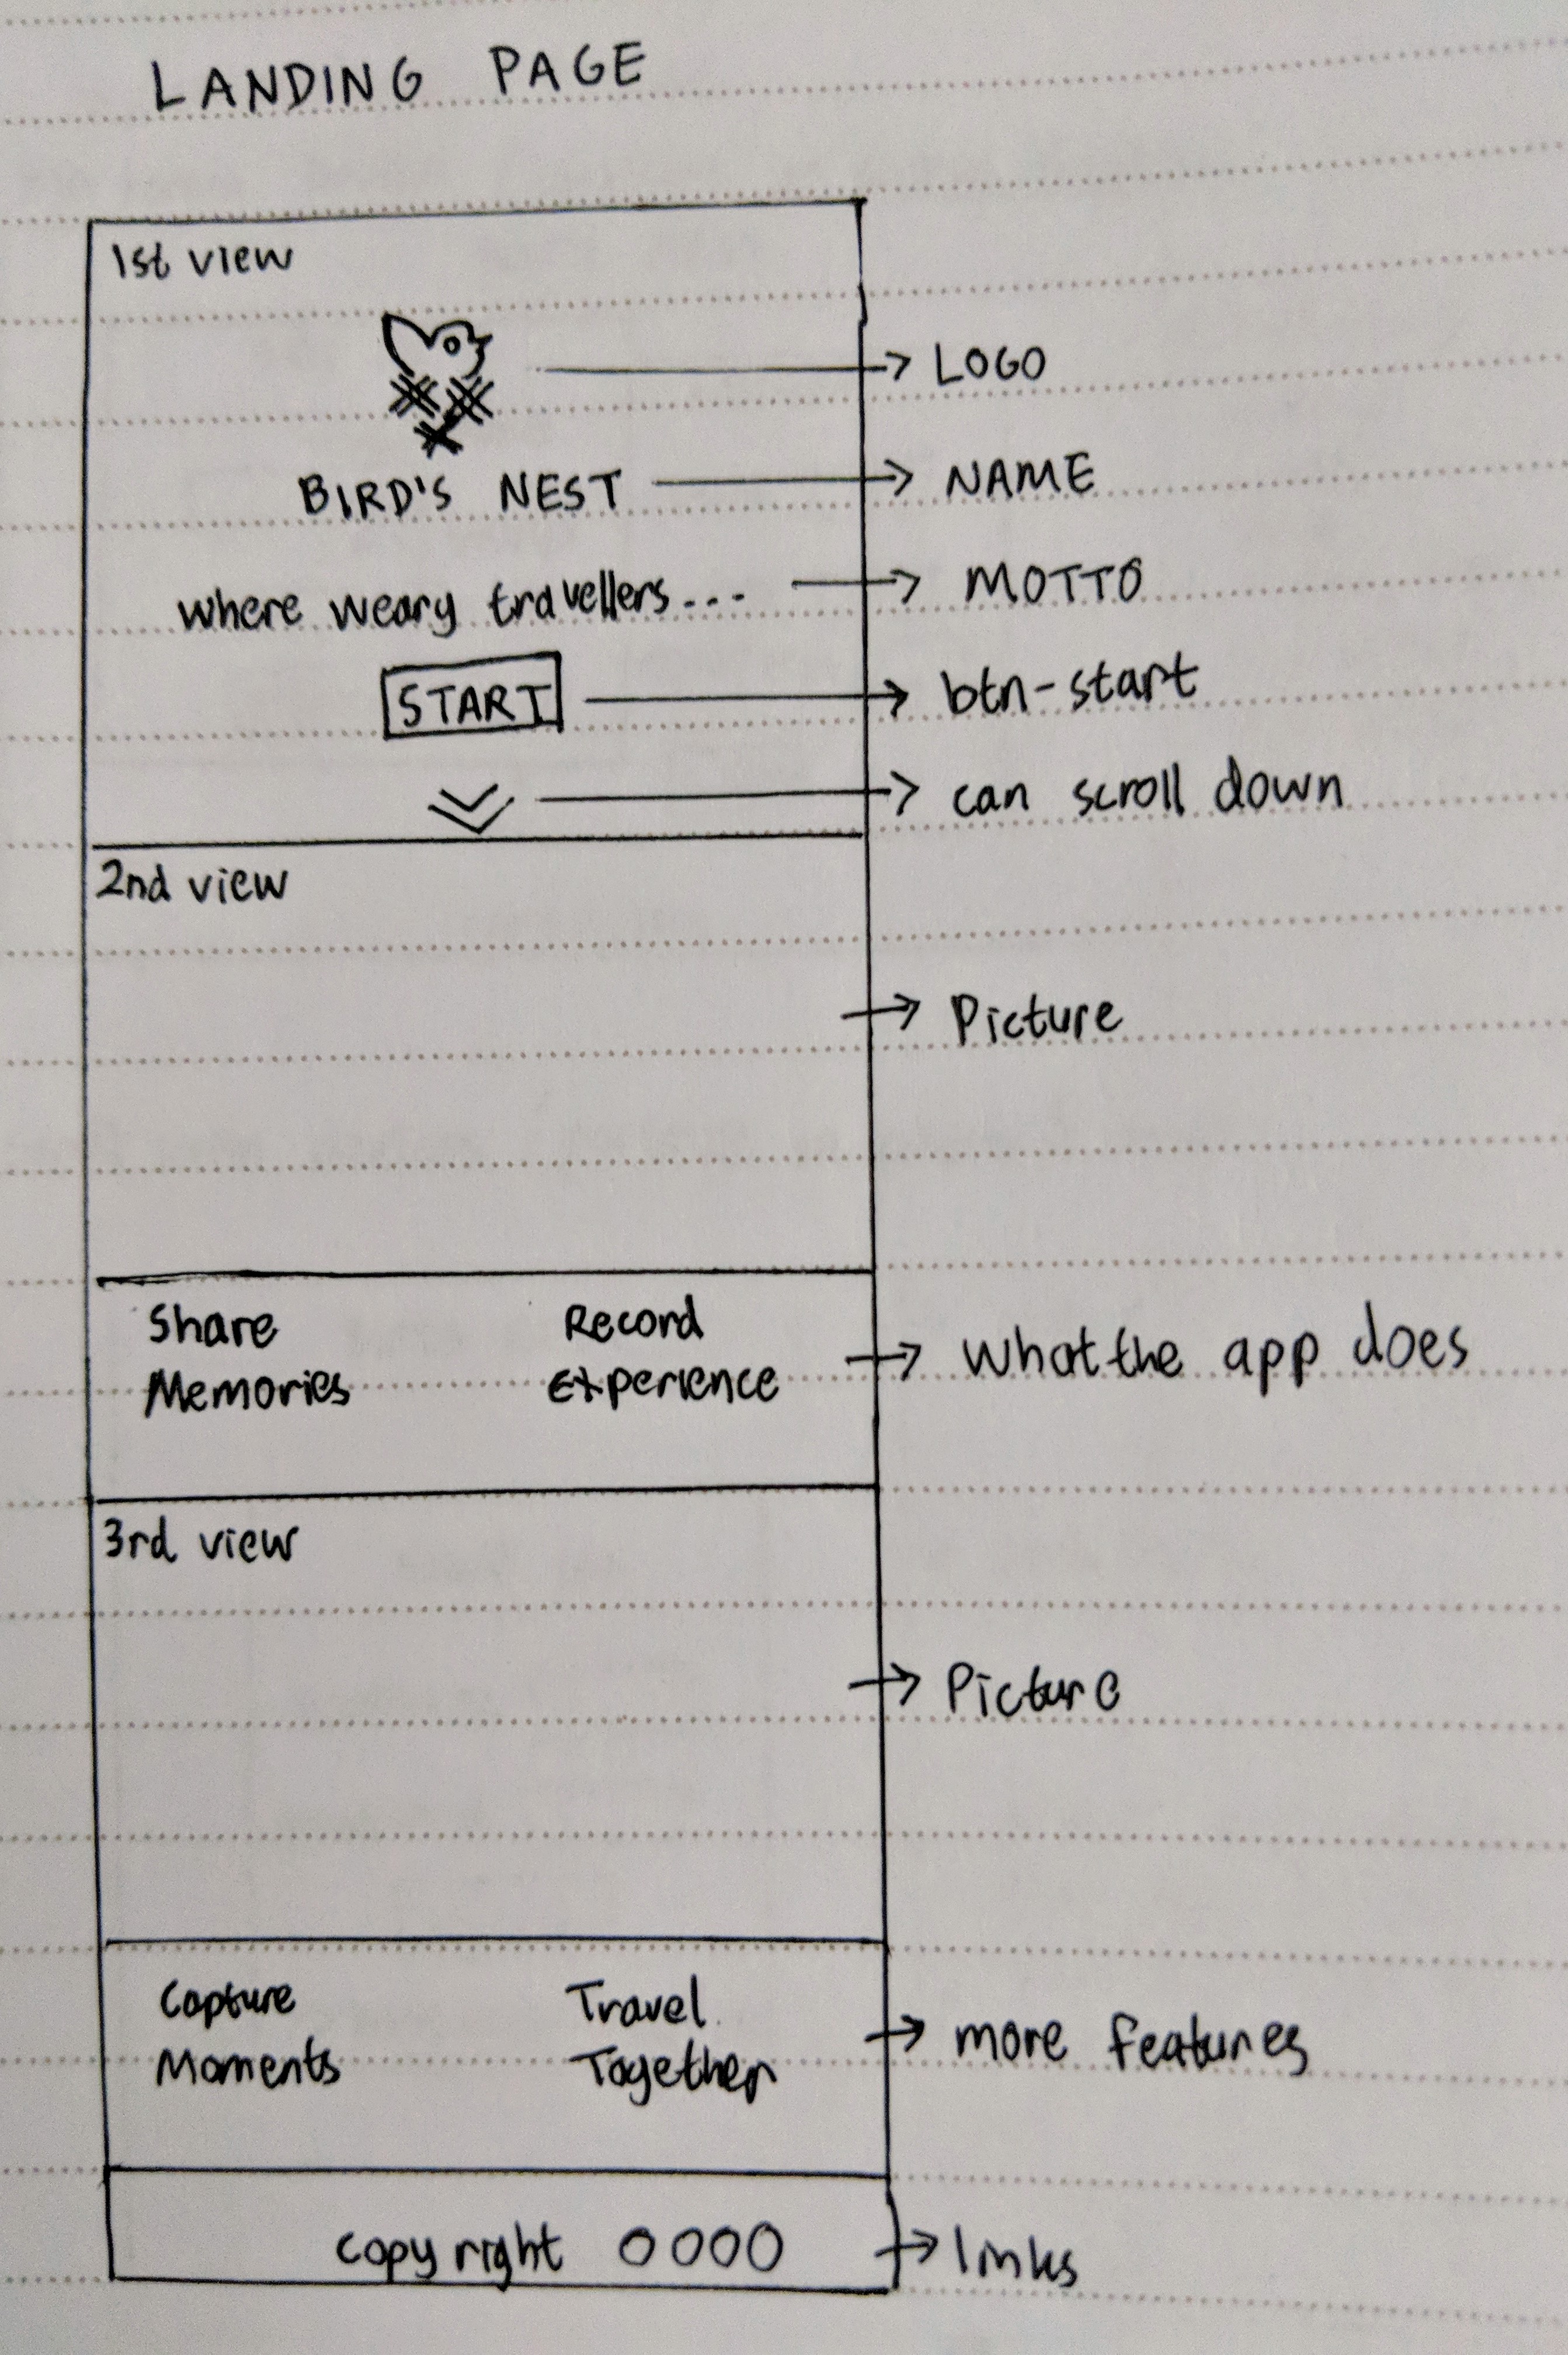 LANDING PAGE
1st view
LOGO
BIRD'S NEST
NAME
where weary travellers...
MOTTO
START
btn-start
can scroll down
2nd view
Picture
Share
Memories
Record
Experience
what the app does
3rd view
Picture
Capture
Moments
Travel
Together
more features
copy right OOOO
links